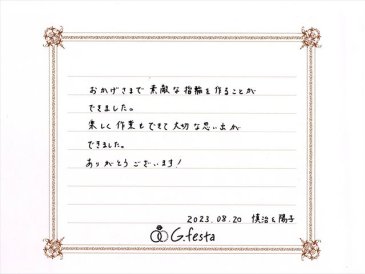 おかげさまで素敵な指輪を作ることが
できました。
楽しく作業もできて大切な思い出が
できました。
ありがとうございます!
2023.08.20 慎治&陽子
G.festa